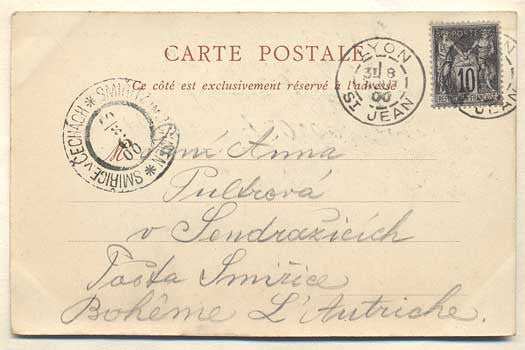 CARTE POSTALE
Ce côté est exclusivement réservé à l'adresse
LYON
31 8
00
ST JEAN
POSTE
10
SMIŘICE V ČECHÁCH * SMIŘITZ
8
00
M
Anna
Pultrová
v Sendražicích
Pošta Smiřice
Bohême L'Autriche.